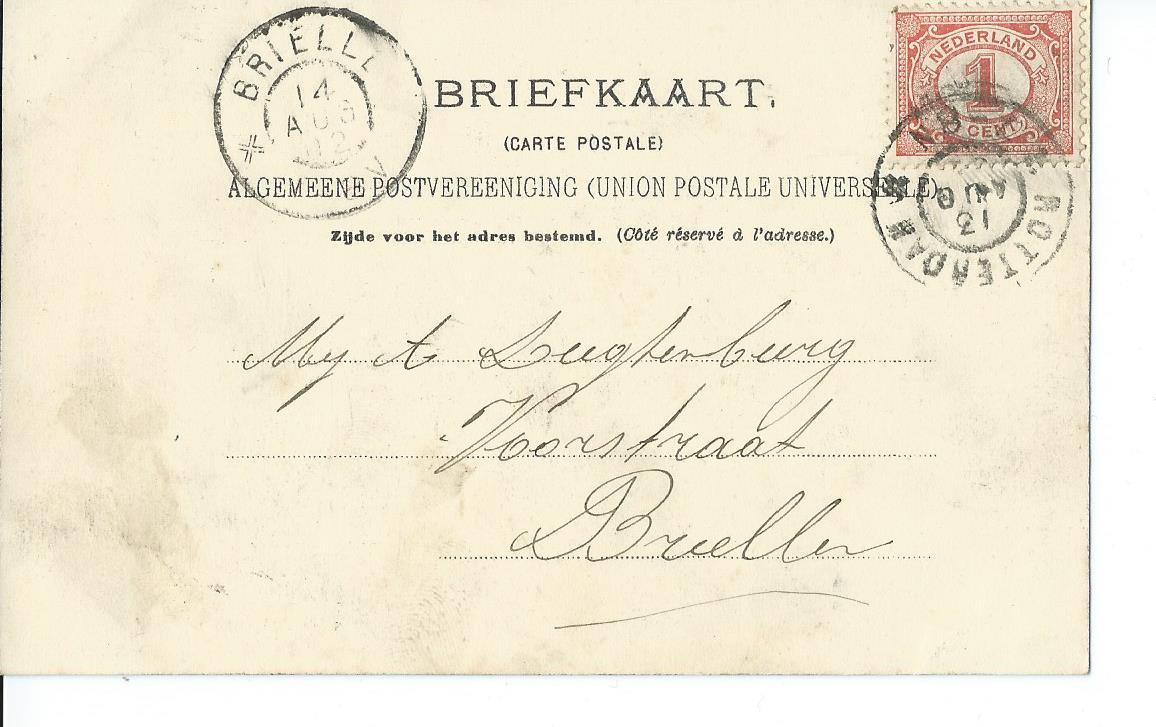 BRIELLE
14
AUG
02
V
BRIEFKAART.
(CARTE POSTALE)
ALGEMEENE POSTVEREENIGING (UNION POSTALE UNIVERSELLE)
Zijde voor het adres bestemd. (Côté réservé à l'adresse.)
NEDERLAND
1
CENT
ROTTERDAM
Mej A Lugtenburg
Voorstraat
Brielle